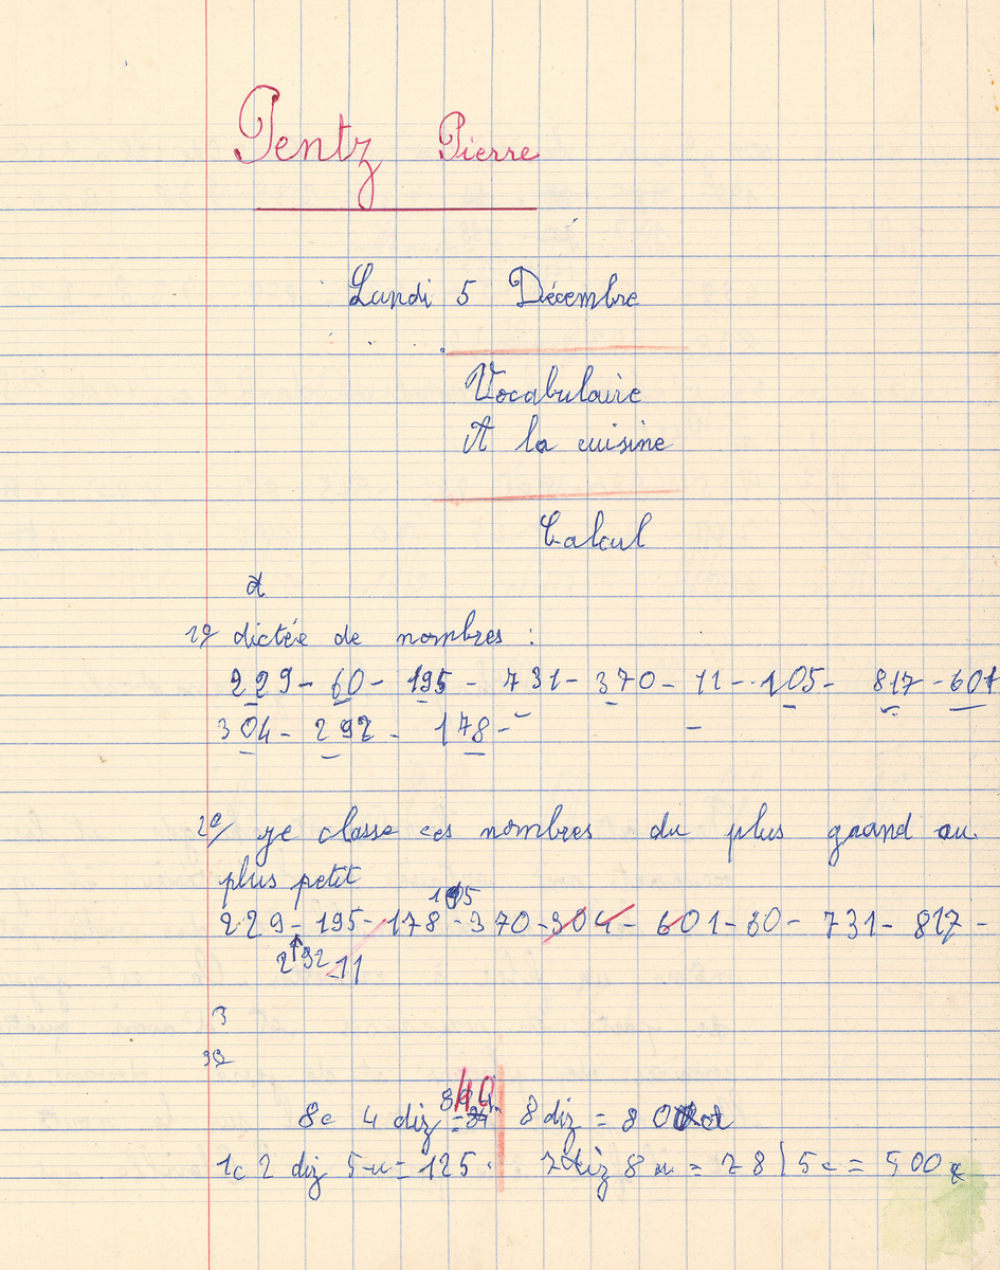 Pentz Pierre
Lundi 5 Décembre
Vocabulaire
A la cuisine
Calcul
1º dictée de nombres :
229 - 60 - 195 - 731 - 370 - 11 - 105 - 817 - 601
304 - 292 - 178 -
2º/ je classe ces nombres du plus grand au
plus petit
105
229 - 195 - 178 - 370 - 304 - 601 - 60 - 731 - 817 -
292 - 11
3
3º
40
8c 4 diz = 8 diz = 80
1c 2 diz 5 u = 125. 7 diz 8 u = 78 | 5 c = 500